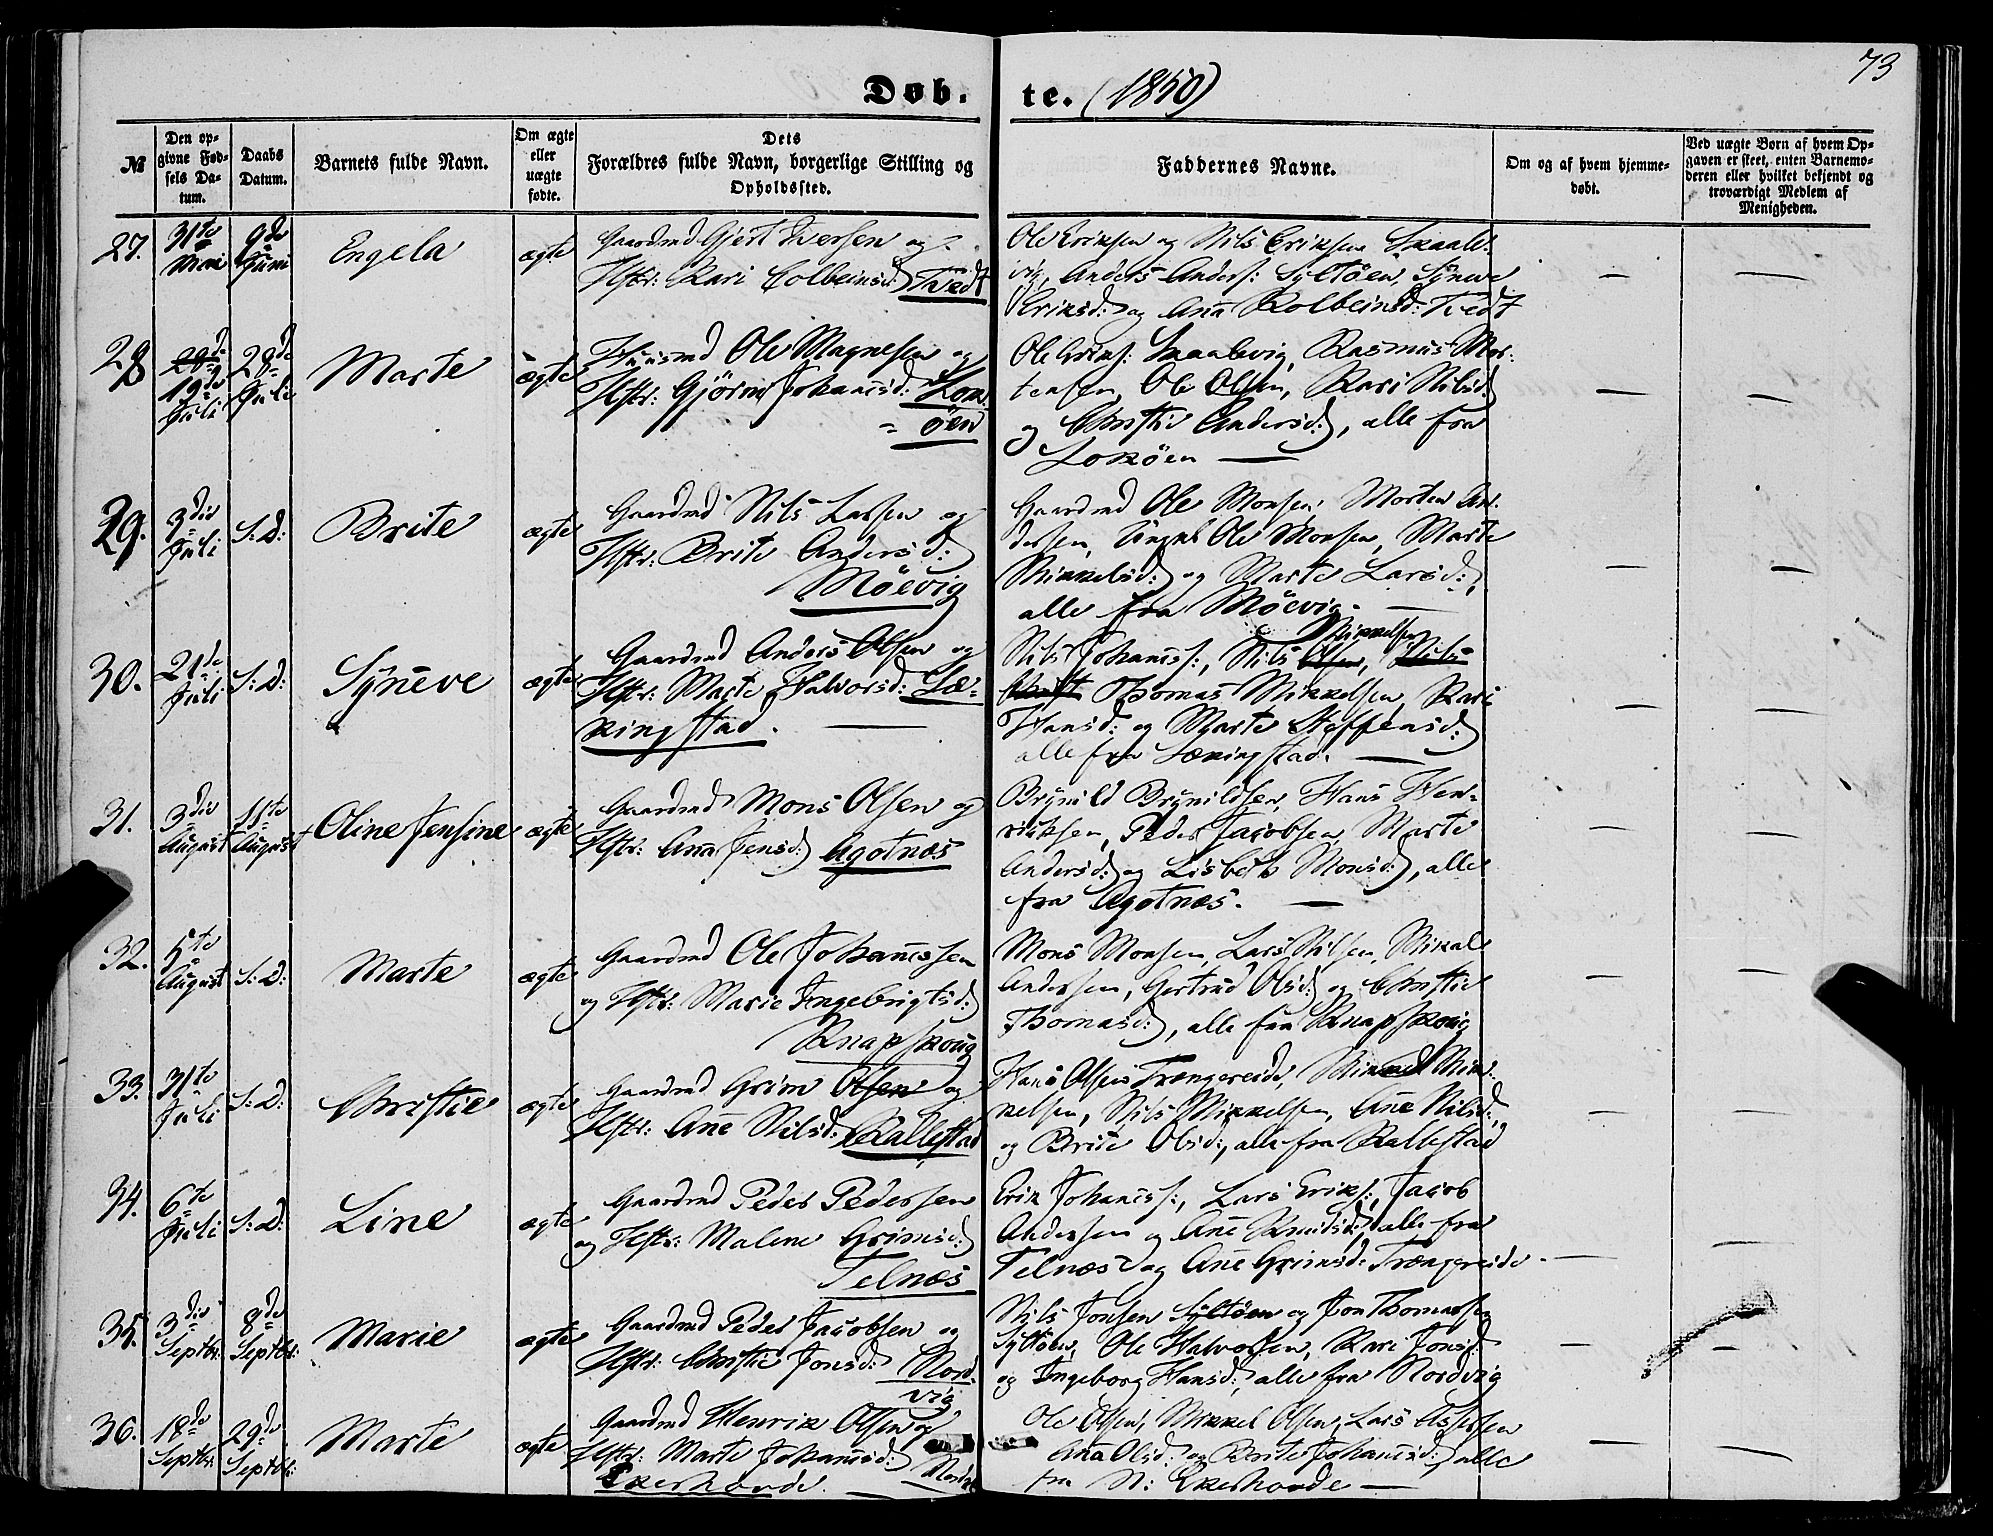 73
Døb. te. (1850)
№
Den op-
givne Fød-
sels Da-
tum.
Daabs
Datum.
Barnets fulde Navn.
Om ægte
eller
uægte
fødte.
Dets
Forældres fulde Navn, borgerlige Stilling og
Opholdssted.
Faddernes Navne.
Om og af hvem hjemme-
døbt.
Ved uægte Børn af hvem Op-
gaven er skeet, enten Barnemo-
deren eller hvilket bekjendt og
troværdigt Medlem af
Menigheden.
27. 31te Mai 9de Juni Engela ægte
Gaardmd Gjert Iversen og
Hstr: Kari Colbeinsd: Tvedt
Ole Eriksen og Nils Eriksen Skaale-
vig, Anders Anders: Syltöen, Synve
Eriksd: og Ana Kolbeinsd: Tvedt
28 19de Juli 28de Juli Marte ægte
Huusmd Ole Magnesen og
Hstr: Gjörm Johanesd: Lok-
= öen
Ole Eriks: Skaalevig, Rasmus Mor-
tensen, Ole Olsen, Kari Nilsd:
og Christie Andersd:, alle fra
Loköen
29. 3die Juli S: D: Brite ægte
Gaardmd Nils Larsen og
Hstr: Brite Andersd:
Möevig
Gaardmd Ole Monsen, Morten An-
dersen, Ungkl Ole Monsen, Marte
Mikkelsd: og Marte Larsd:,
alle fra Möevig.
30. 21de Juli S: D: Syneve ægte
Gaardmd Anders Olsen og
Hstr: Marte Halvorsd: Læ-
kingstad.
Mikkelsen
Nils Johaness:, Nils Olsen, Nils
Thomas Mikkelsen, Kari
Hansd: og Marte Steffensd:
alle fra Lækingstad.
31. 3die August 11te August Oline Jensine ægte
Gaardmd Mons Olsen og
Hstr: Ana Jensd: Agotnæs
Brynild Brynildsen, Hans Hen-
riksen, Peder Jacobsen, Marte
Andersd: og Lisbeth Monsd:, alle
fra Agotnæs.
32. 5te August S: D: Marte ægte
Gaardmd Ole Johanessen
og Hstr: Marie Ingebrigtsd:
Knapskoug
Mons Monsen, Lars Nilsen, Mikal
Andersen, Gertrud Olsd: og Christie
Thomasd:, alle fra Knapskoug
33. 31te Juli S: D: Christie ægte
Gaardmd Grim Olsen og
Hstr: Ane Nilsd: Kallestad
Hans Olsen Trængereide, Mikkel Mik-
kelsen, Nils Mikkelsen, Ane Nilsd:,
og Brite Olsd:, alle fra Kallestad
34. 6te Juli S: D: Line ægte
Gaardmd Peder Pedersen
og Hstr: Malene Grimsd:
Telnæs
Erik Johaness:, Lars Eriks:, Jacob
Andersen og Ane Knudsd:, alle fra
Telnæs og Ane Grimsd: Trængereide
35. 3die Septbr: 8de Septbr: Marie ægte
Gaardmd Peder Jacobsen og
Hstr: Christie Jonsd: Nord-
vig
Nils Jonsen Syltöen og Jon Thomassen
Syltöen, Ole Halvorsen, Kari Jonsd:
og Ingeborg Hansd:, alle fra Nordvig
36. 18de Septbr: 29de Septbr: Marte ægte
Gaardmd Henrik Olsen og
Hstr: Marte Johanesd:
Ekerhovde.
Ole Olsen, Mikkel Olsen, Lars
Ana Olsd: og Brite Johanesd:, alle
fra N: Ekerhovde